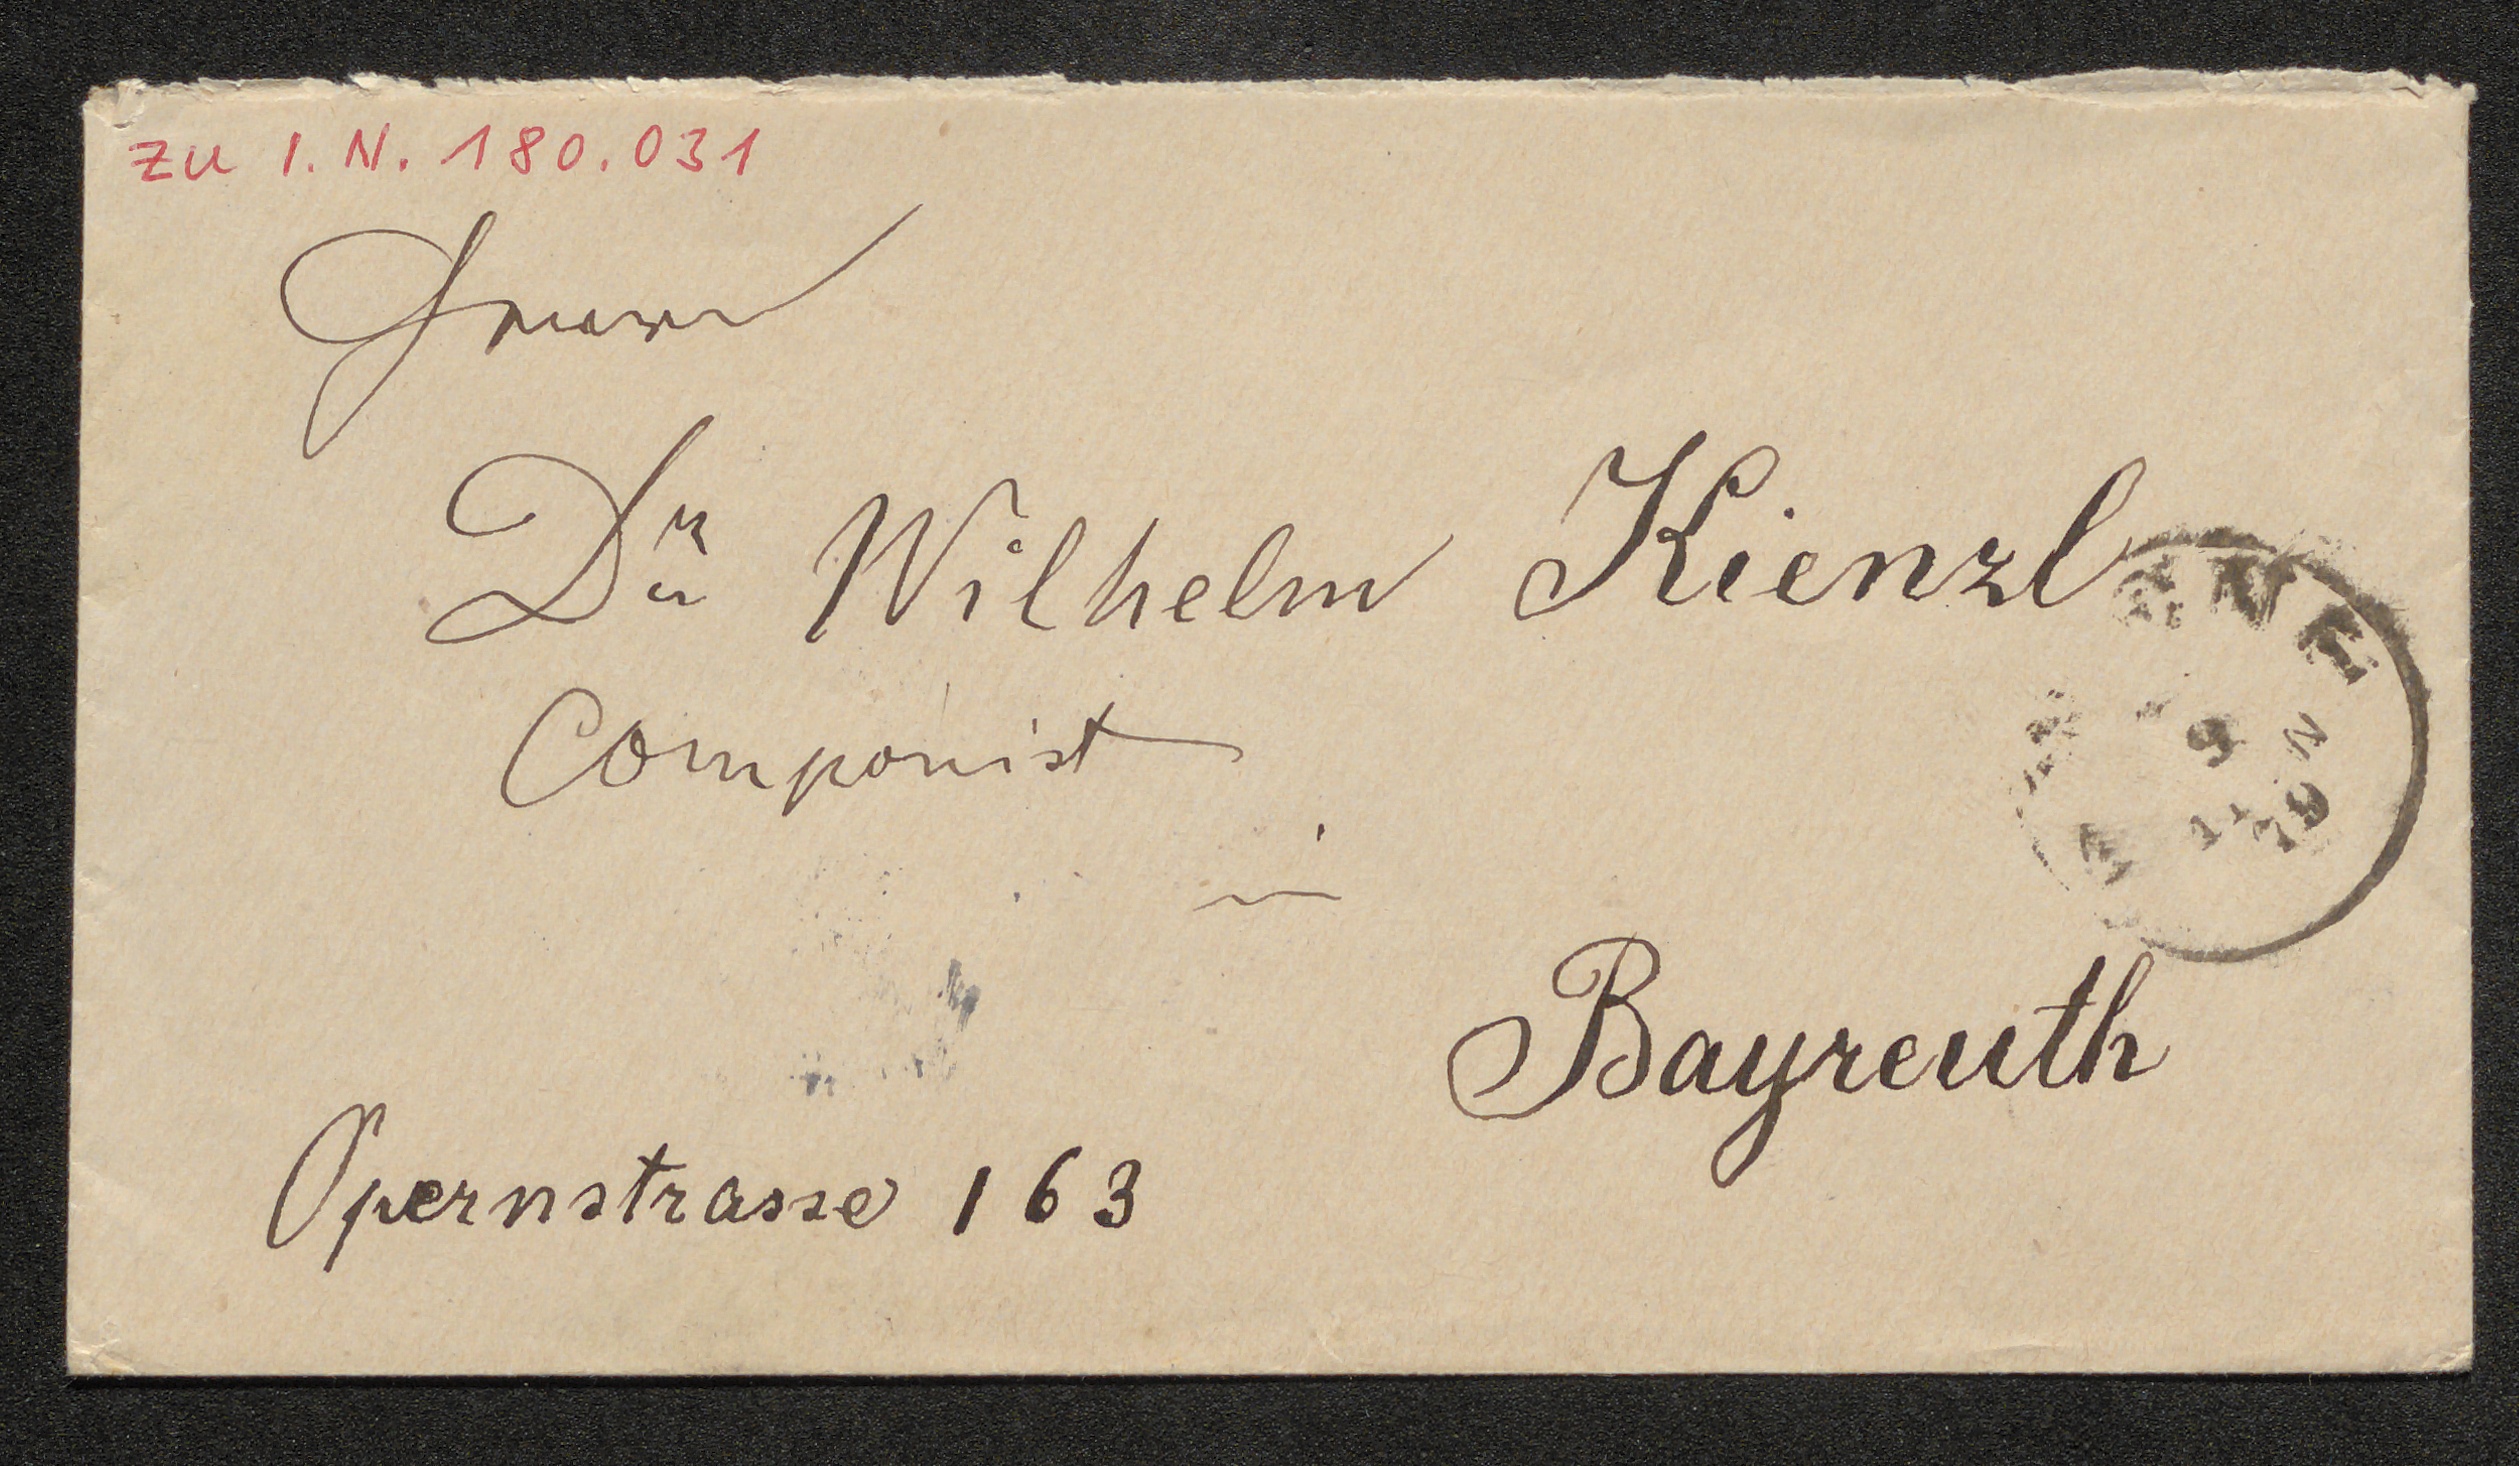 zu I.N. 180.031
Herrn
Dr. Wilhelm Kienzl
Componist
in
Bayreuth
Opernstrasse 163